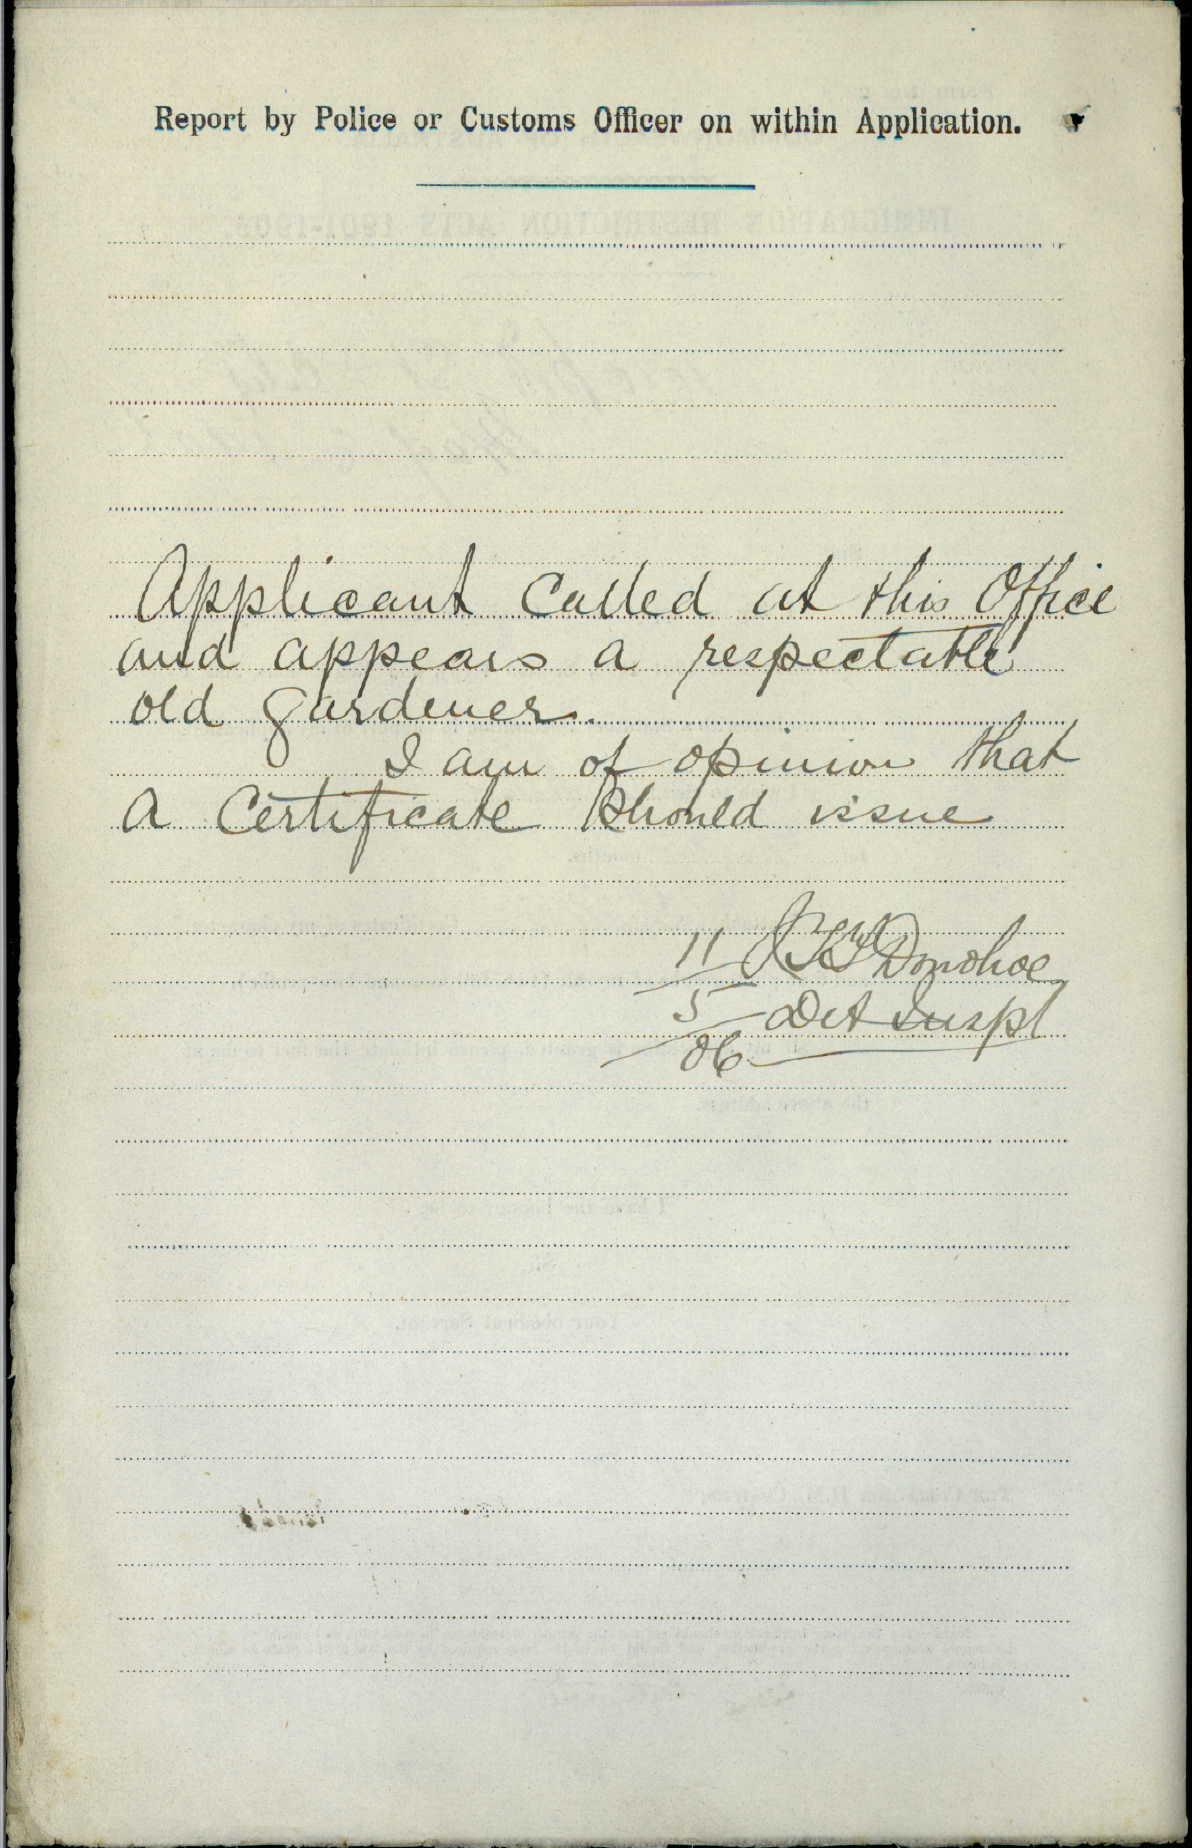 Report by Police or Customs Officer on within Application.
Applicant called at this Office
and appears a respectable
old gardener.
I am of opinion that
a Certificate should issue
11 Donohoe
5 Det Inspl
06